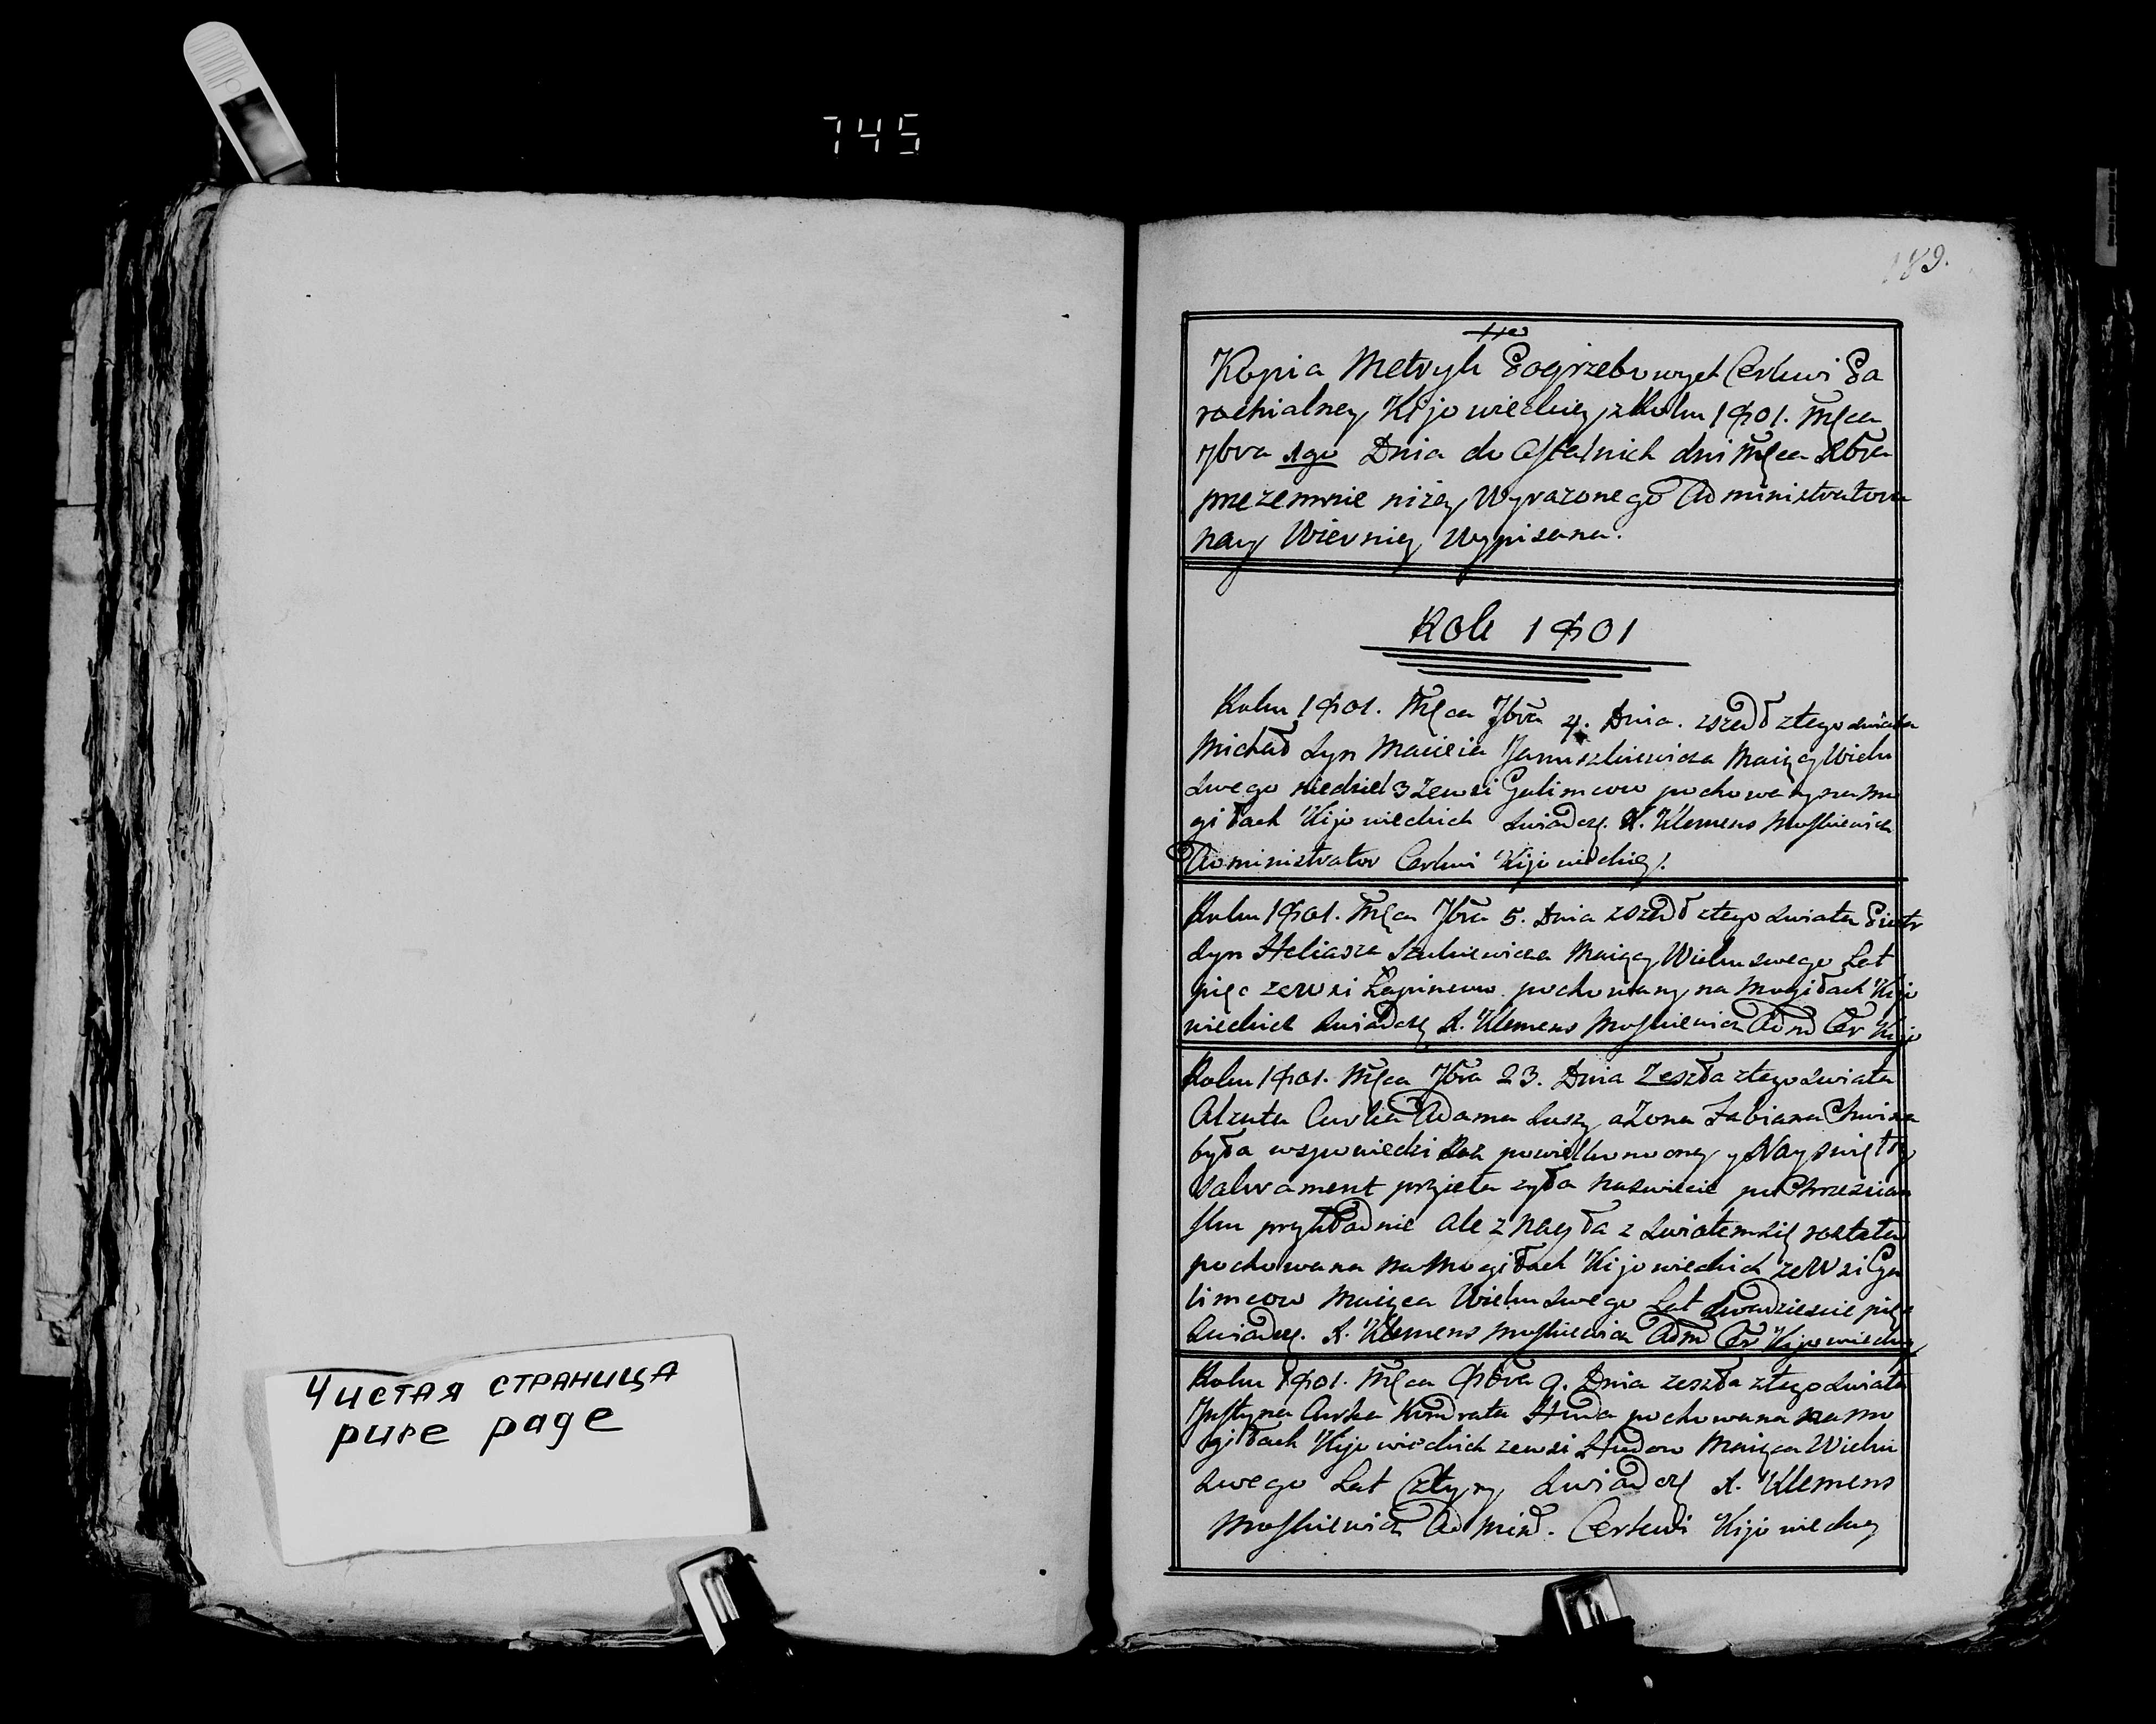 745
189.
Kopia Metryk Pogrzebowych Cerkwi Pa
rochialney Kijowieckiey z Roku 1801. Mſca
7bra 1go Dnia do Oſtatnich dni Mſca Xbra
przezemnie niżey Wyrazonego Administratora
nay Wierniey Wypisana.
Rok 1801
Roku 1801. Mſca 7bra 4. Dnia. zszedł ztego swiata
Michał Syn Macieia Januszkiewicza Maiący Wieku
Swego niedziel 3 zewsi Galimcow pochowany na mo
giłach Kijowieckich Swiadczę. X. Klemens Moſkiewicz
Administrator Cerkwi Kijowieckiey.
Roku 1801. Mſca 7bra 5. Dnia zszedł ztego Swiata Piotr
Syn Heliasza Maiący Wieku swego Lat
pięc zewsi Łapincow pochowany na Mogiłach Kijo
wieckich Swiadczę X. Klemens Moſkiewicz Adm Cer Kijo
Roku 1801. Mſca 7bra 23. Dnia Zeszła ztego Swiata
Curka Adama a Zona Fabiana
była wspowiedzi Rok powielkonocney y Nayswiętszy
Sakrament przieła zyła naswiecie po Chrzescian
ſku przykładnie ale z nagła z Swiatem się rozstała
pochowana na Mogiłach Kijowieckich ze Wsi Ga
limcow Maiąca Wieku Swego Lat dwadziescie pięc
Swiadczę. X. Klemens Moſkiewicz Adm Cer Kijowieckiey
Roku 1801. Mſca 8bra 9. Dnia zeszła ztego Swiata
Juſtyna Curka Kondrata Huda pochowana na mo
giłach Kijowieckich zewsi Hudow Maiąca Wieku
Swego Lat Cztyry Swiadczę X. Klemens
Moſkiewicz Admin. Cerkwi Kijowieckiey
Чистая страница
pure page